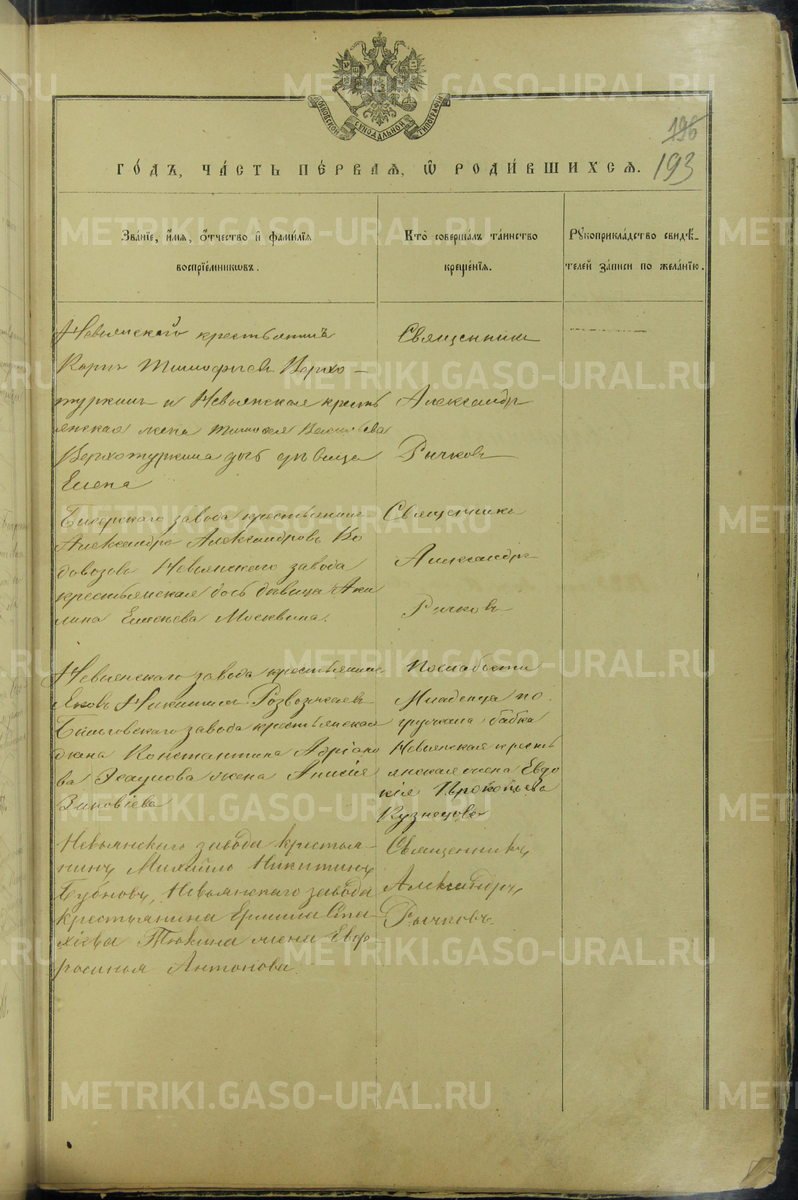 МОСКОВСКОЙ СУНОДАЛЬНОЙ ТИПОГРАФІИ
198
193
ГО́ДЪ, ЧА́СТЬ ПЕ́РВАѦ, Ѡ҆ РОДИ́ВШИХСѦ.
Зва́нїе, и҆́мѧ, ѻ҆́тчество и҆ фами́лїѧ
воспрїе́мникѡвъ.
Кто̀ соверша́лъ та́инство
креще́нїѧ.
Рꙋкоприкла́дство свидѣ́-
телей за́писи по жела́нїю.
Невьянской крестьянинъ
Карпъ Тимофѣевъ Верхо-
туркинъ и Невьянская кресть
янская жена Васильева
Верхотуркина дочь дѣвица
Елена
Священникъ
Александръ
Рычковъ
завода крестьянинъ
Александръ Александровъ Во
довозовъ Невьянскаго завода
крестьянская дочь дѣвица Аки
лина Москвина.
Священникъ
Александръ
Рычковъ
Невьянскаго завода крестьянинъ
Яковъ Никитинъ
завода крестьянская
Константина Адріано
ва жена Анисія
Зиновіева
По слабости
Младенца по
гружала бабка
Невьянская кресть
янская жена Евдо
кія Прокопьева
Кузнецова
Невьянскаго завода крестья-
нинъ Михайло Никитинъ
Бубновъ, Невьянскаго завода
крестьянина
Тюкина жена Евф-
росинья Антонова.
Священникъ,
Александръ,
Рычковъ.
METRIKI.GASO-URAL.RU